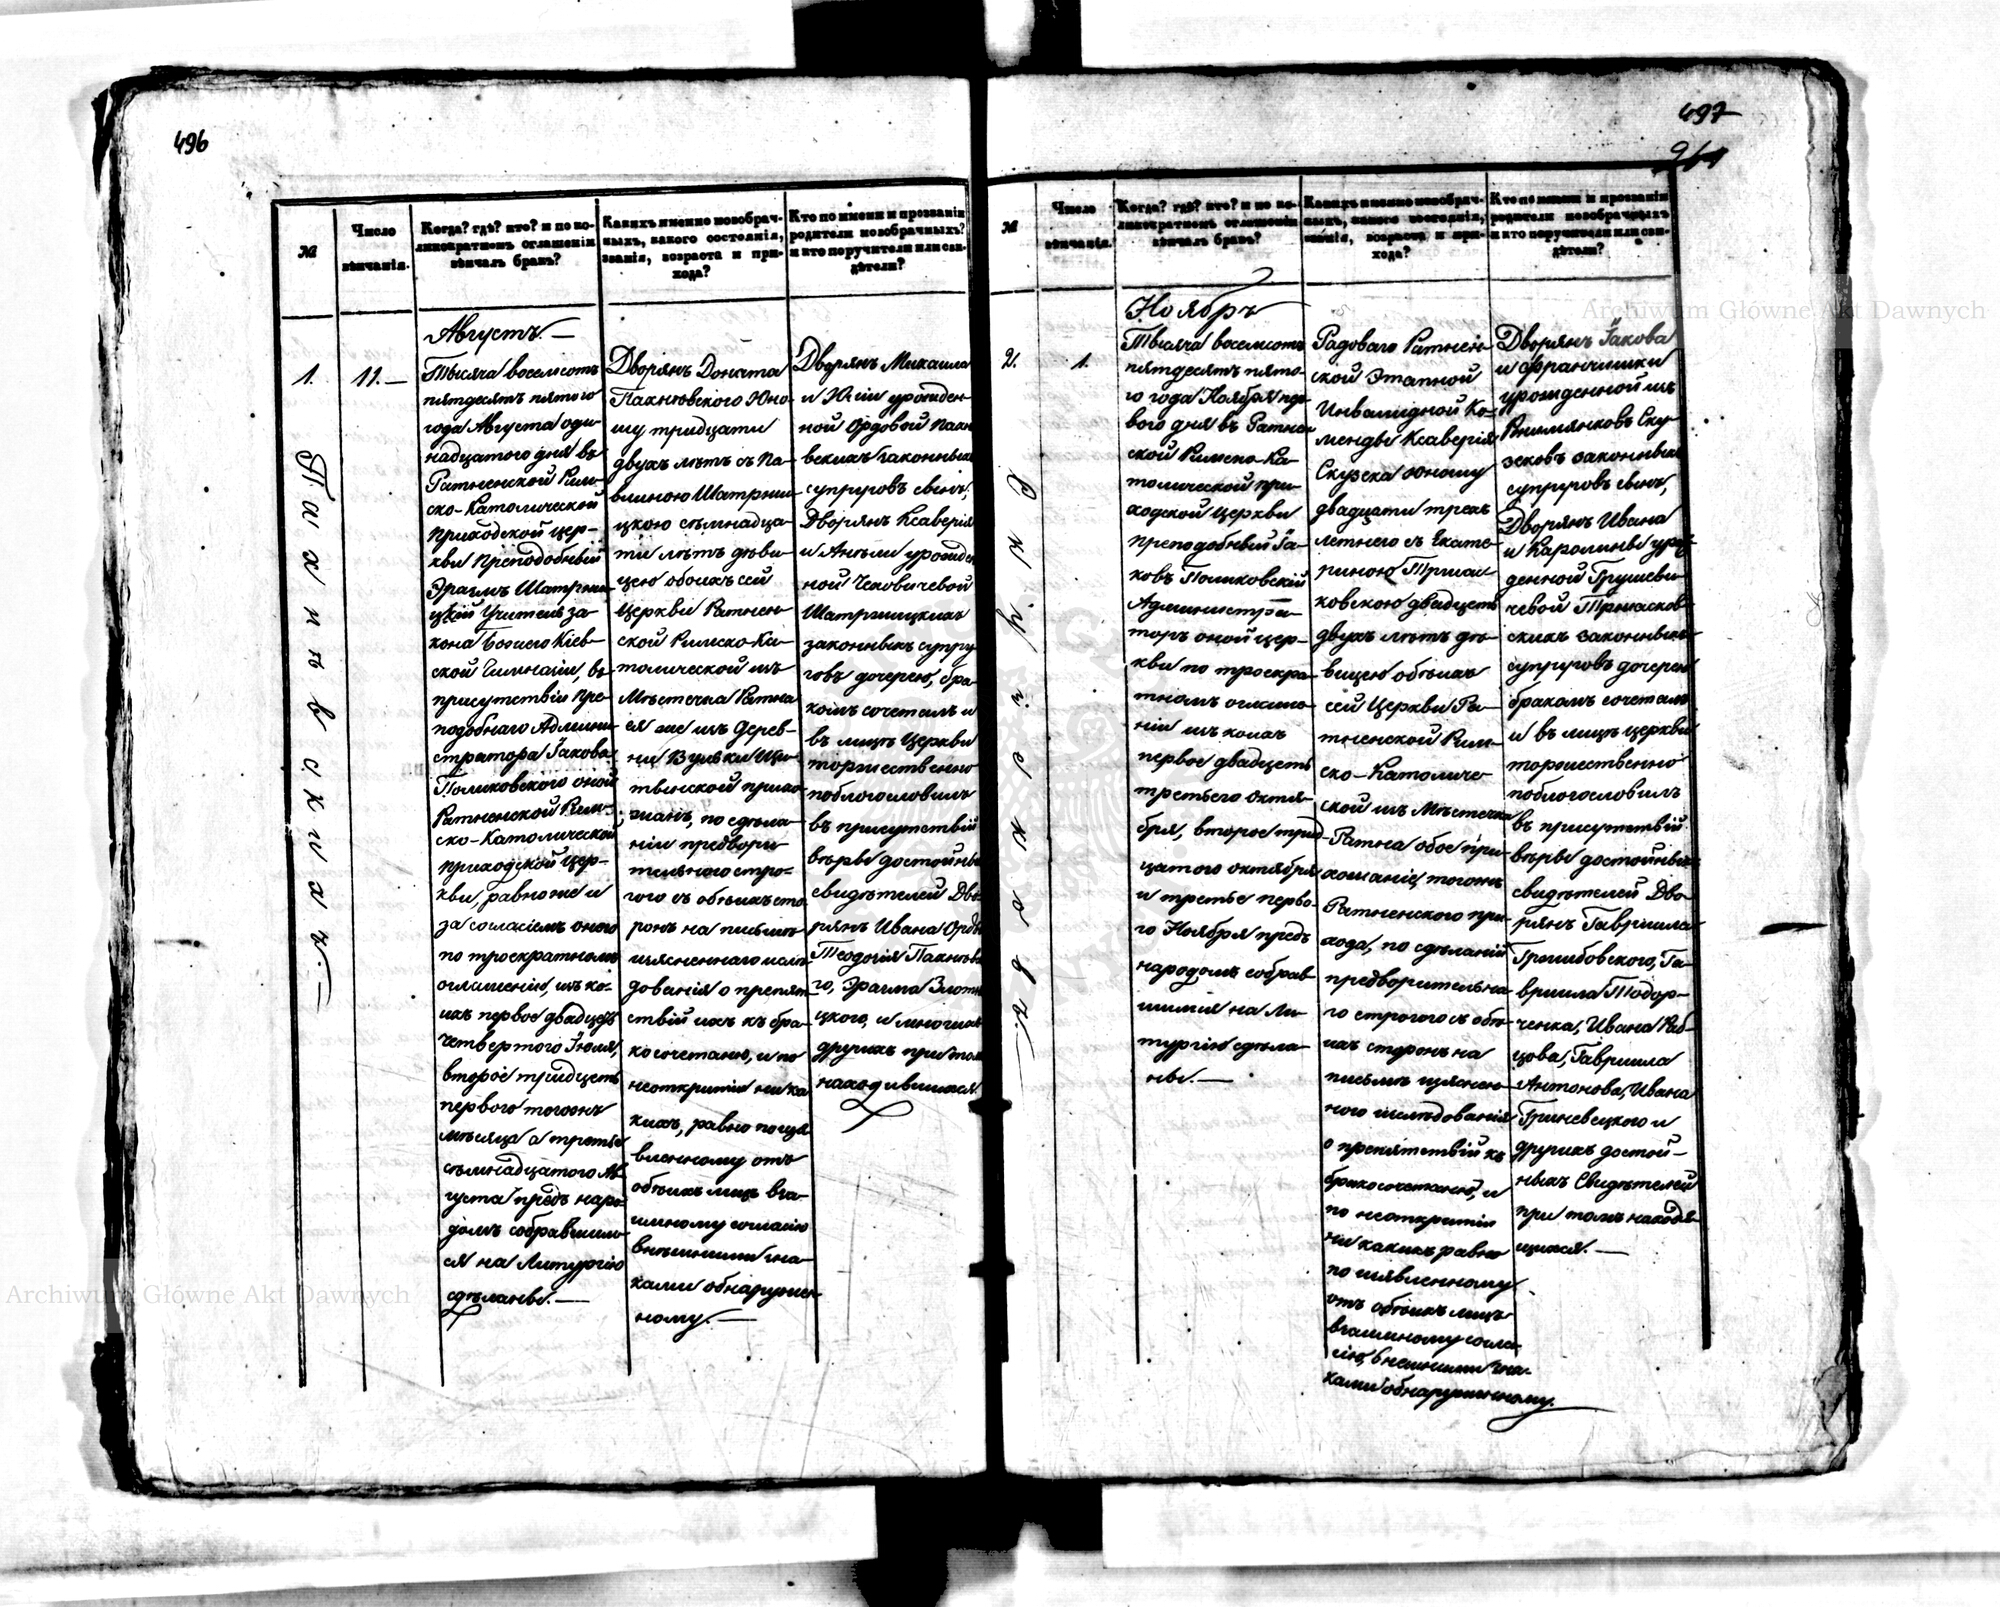 496
№
Число
вѣнчанія.
Когда? гдѣ? кто? и по ко-
ликократномъ оглашеніи
вѣнчалъ бракъ?
Какихъ именно новобрач-
ныхъ, какого состоянія,
званія, возраста и при-
хода?
Кто по имени и прозванію
родители новобрачныхъ?
и кто поручители или сви-
дѣтели?
1.
11.—
Пахнѣвскихъ.—
Августъ.—
Тысяча восемсотъ
пятдесятъ пятого
года Августа оди-
надцатого дня въ
Ратненской Рим-
ско-Католической
приходской цер-
кви Преподобный
Эразмъ Шатрни-
цкій Учитель за-
кона Божіего Кіев-
ской Гимназіи, въ
присутствіи пре-
подобнаго Админи-
стратора Іакова
Поликовского оной
Ратненской Рим-
ско-Католической
приходской цер-
кви, равно же и
за согласіемъ оного
по троекратномъ
оглашеніи, изъ ко-
ихъ первое двадцеть
четвертого Іюля,
второе тридцеть
первого тогожъ
мѣсяца а третье
седмнадцатого Ав-
густа предъ наро-
домъ собравшим-
ся на Литургію
сдѣланы.—
Дворянъ Доната
Пахнѣвского Юно-
шу тридцати
двухъ лѣтъ съ Па-
влиною Шатрни-
цкою седмнадца-
ти лѣтъ дѣви-
цею обоихъ сей
Церкви Ратнен-
ской Римско-Ка-
толической изъ
Мѣстечка Ратна
ея же изъ Дерев-
ни Вульки Щи-
тынской прихо-
жанъ, по сдѣла-
ніи предвори-
тельного стро-
гого съ обѣихъ сто-
ронъ на письмѣ
изясненнаго изслѣ-
дованія о препят-
ствій ихъ къ бра-
косочетаню, и по
неоткрытіи ни ка-
кихъ, равно по изя-
вленному отъ
обѣихъ лицъ вза-
имному согласію
внѣшними зна-
ками обнаружен-
ному.—
Дворянъ Михаила
и Юліи урожден-
ной Ордовой Пахнѣ-
вскихъ законныхъ
супруговъ сынъ,
Дворянъ Ксаверія
и Анѣли урожден-
ной Чеховичевой
Шатрницкихъ
законныхъ супру-
говъ дочерею, бра-
комъ сочеталъ и
въ лицѣ Церкви
торжественно
поблогословилъ
въ присутствій
вѣры достойныхъ
свидѣтелей Дво-
рянъ Ивана Орды
Теодозія Пахнѣвско-
го, Эразма Злотни-
цкого, и многихъ
другихъ при томъ
находившихся.
497
961
№
Число
вѣнчанія.
Когда? гдѣ? кто? и по ко-
ликократномъ оглашеніи
вѣнчалъ бракъ?
Какихъ именно новобрач-
ныхъ, какого состоянія,
званія, возраста и при-
хода?
Кто по имени и прозванію
родители новобрачныхъ?
и кто поручители или сви-
дѣтели?
2.
1.
Ноябрь
Тысяча восемсотъ
пятдесятъ пято-
го года Ноября пер-
вого дня въ Ратнен-
ской Римско-Ка-
толической при-
ходской Церкви
преподобный Іа-
ковъ Поликовскій
Администра-
торъ оной цер-
кви по троекра-
тномъ оглаше-
ніи изъ коихъ
первое двадцеть
третьего Октя-
бря, второе трид-
цатого Октября
и третье перво-
го Ноября предъ
народомъ собрав-
шимся на Ли-
тургію сдѣла-
ны.—
Радоваго Ратнен-
ской Этапной
Инвалидной Ко-
менды Ксаверія
Скузека юношу
двадцати трехъ
летнего съ Екате-
риною Тржас-
ковскою двадцеть
двухъ лѣтъ дѣ-
вицею обѣихъ
сей Церкви Ра-
тненской Рим-
ско-Католиче-
ской изъ Мѣстечка
Ратна обое при-
хожаніе тогожъ
Ратненского при-
хода, по сдѣланій
предворительна-
го строгого съ обѣ-
ихъ сторонъ на
письмѣ изяснен-
ного изслѣдованія
о препятствій къ
бракосочетанію, и
по неоткрытіи
ни какихъ равно
по изявленному
отъ обѣихъ лицъ
взаимному согла-
сію, внешними зна-
ками обнаруженному.
Дворянъ Іакова
и Францишки
урожденной изъ
Скузековъ законныхъ
супруговъ сынъ,
Дворянъ Ивана
и Каролины урож-
денной Грушеви-
чевой Тржасков-
скихъ законныхъ
супруговъ дочерею
бракомъ сочеталъ
и въ лицѣ церкви
торжественно
поблогословилъ
въ присутствій
вѣры достойныхъ
свидѣтелей Дво-
рянъ Гавриила
Гржибовского, Га-
вриила Тодор-
ченка, Ивана Раб-
цова, Гавриила
Антонова, Ивана
Гриневецкого и
другихъ достой-
ныхъ Свидѣтелей
при томъ находя-
щихся.—
Archiwum Główne Akt Dawnych
Archiwum Główne Akt Dawnych